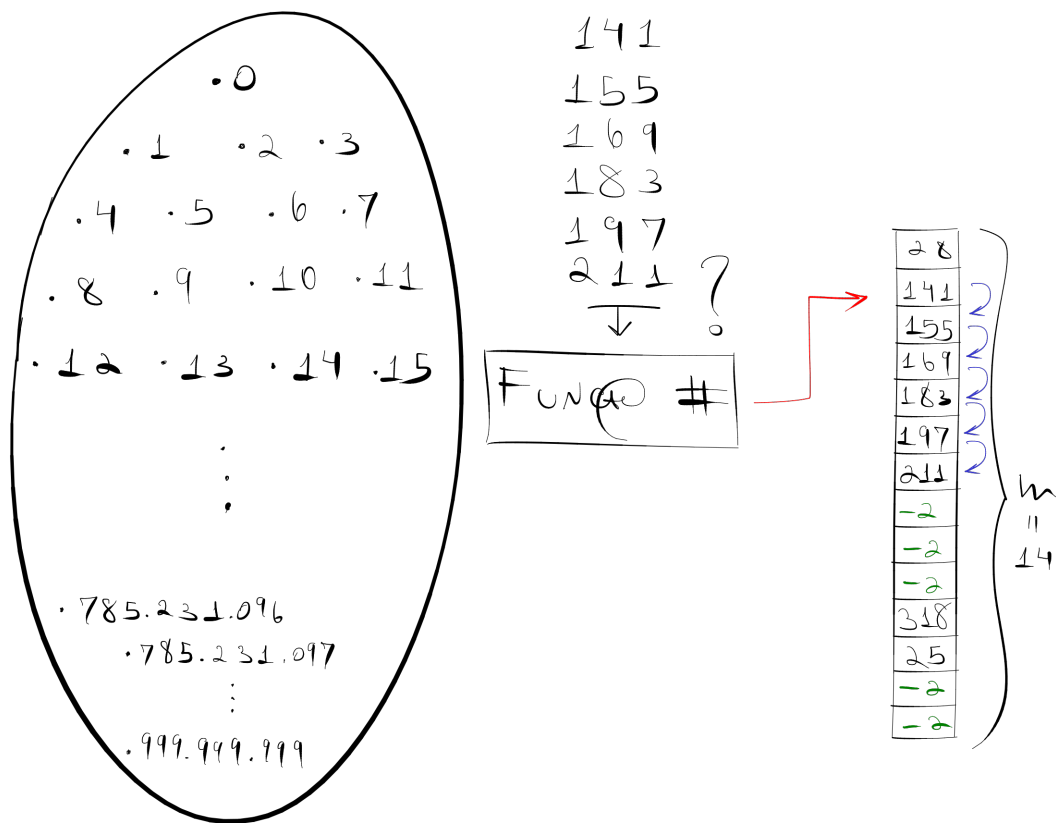 .0
.1 .2 .3
.4 .5 .6 .7
.8 .9 .10 .11
.12 .13 .14 .15
.785.231.096
.785.231.097
.999.999.999
141
155
169
183
197
211 ?
Função #
28
141
155
169
183
197
211
-2
-2
-2
318
25
-2
-2
m
=
14